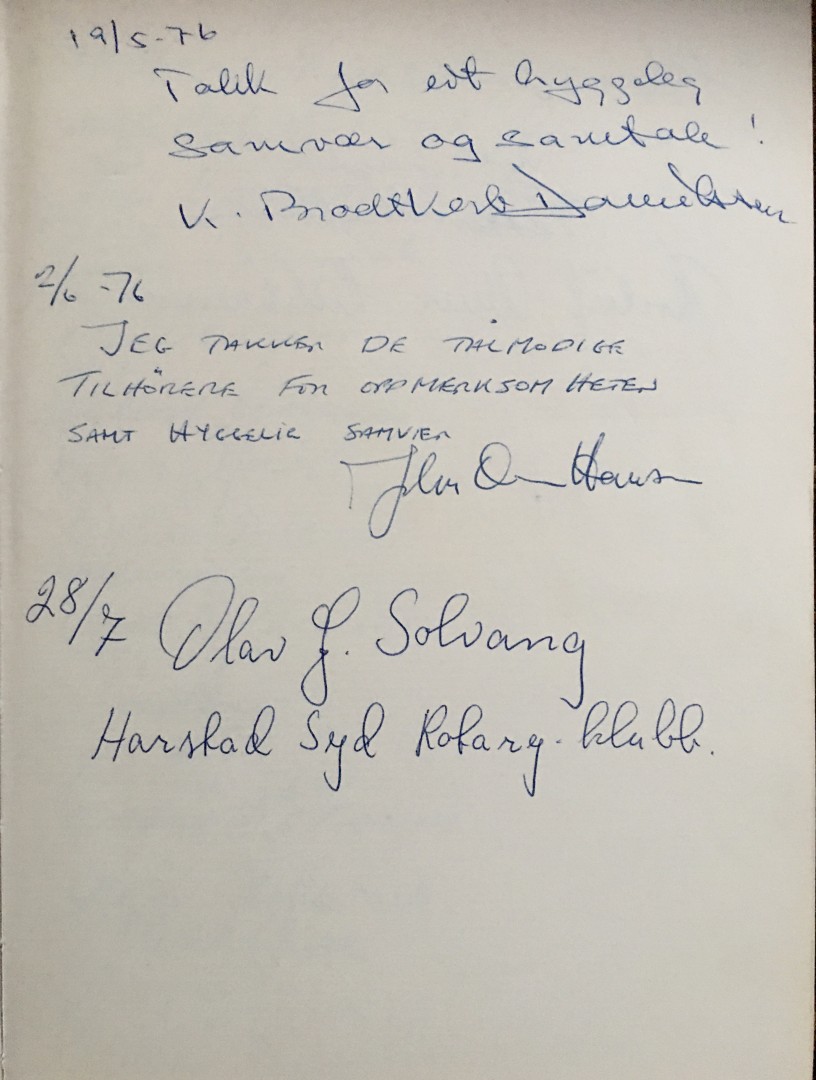 19/5-76
Takk for eit hyggeleg
samvær og samtale!
K. Brodtkorb Danielsen
2/6 -76
JEG TAKKER DE TÅLMODIGE
TILHÖRERE FOR OPPMERKSOMHETEN
SAMT HYGGELIG SAMVÆR
Hansen
28/7 Olav J. Solvang
Harstad Syd Rotary-klubb.